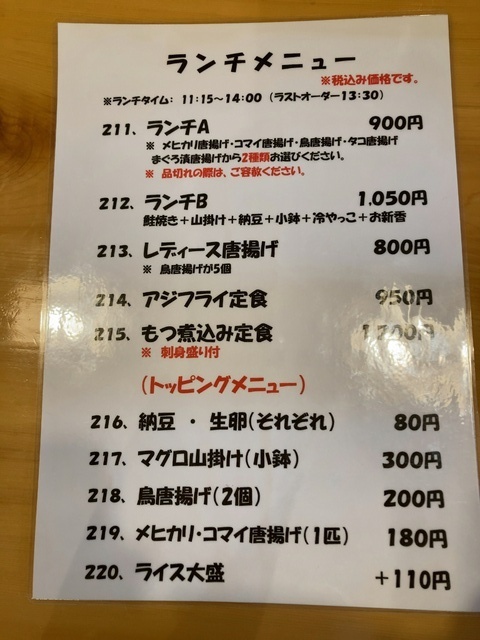 ランチメニュー
※税込み価格です。
※ランチタイム: 11:15～14:00 (ラストオーダー13:30)
211、ランチA 900円
※ メヒカリ唐揚げ・コマイ唐揚げ・鳥唐揚げ・タコ唐揚げ
まぐろ漬唐揚げから2種類お選びください。
※ 品切れの際は、ご容赦ください。
212、ランチB 1.050円
鮭焼き+山掛け+納豆+小鉢+冷やっこ+お新香
213、レディース唐揚げ 800円
※ 鳥唐揚げが5個
214、アジフライ定食 950円
215、もつ煮込み定食
※ 刺身盛り付
(トッピングメニュー)
216、納豆 ・ 生卵(それぞれ) 80円
217、マグロ山掛け(小鉢) 300円
218、鳥唐揚げ(2個) 200円
219、メヒカリ・コマイ唐揚げ(1匹) 180円
220、ライス大盛 +110円